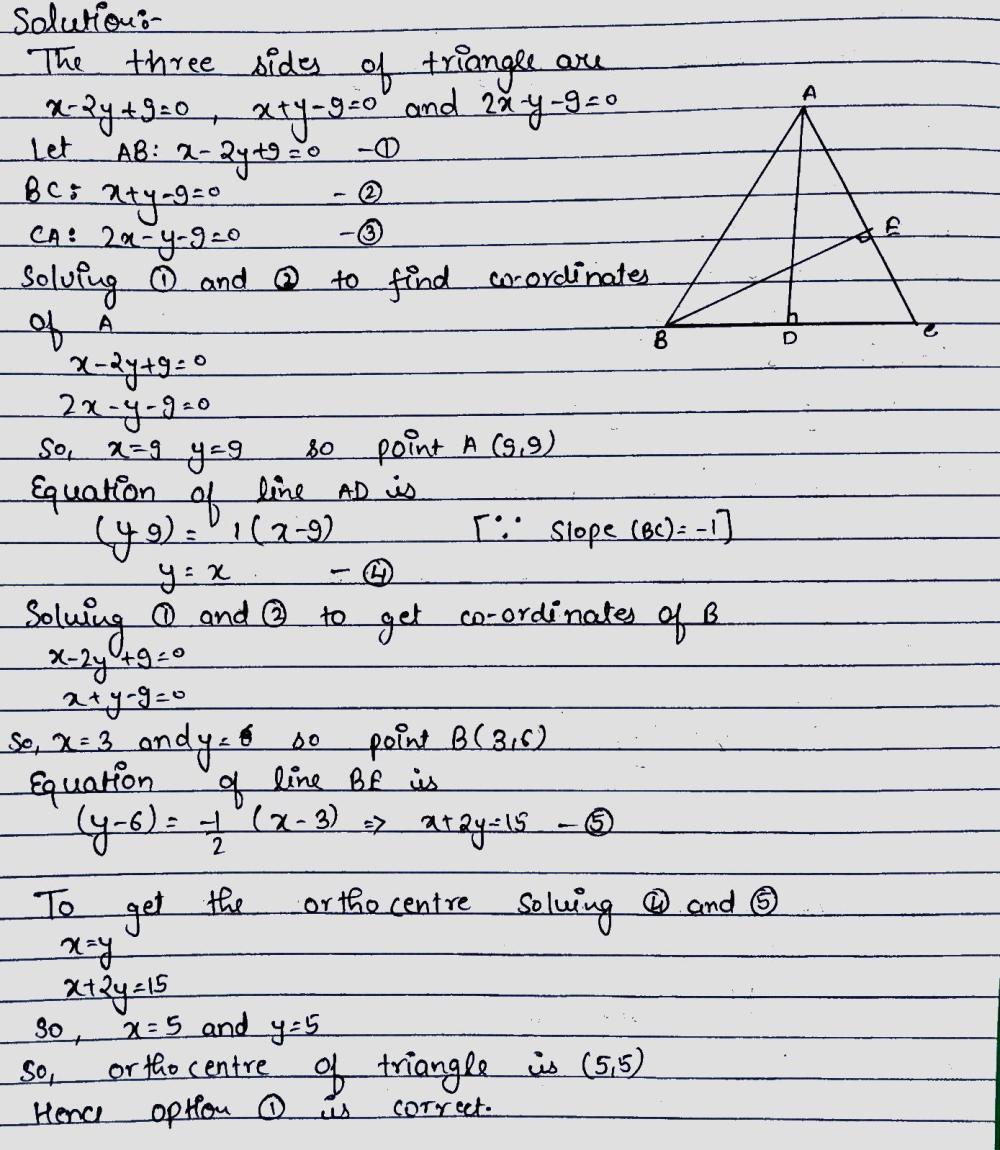 Solution:-
The three sides of triangle are
x-2y+9=0, x+y-9=0 and 2x-y-9=0
Let AB: x-2y+9=0 -①
BC: x+y-9=0 -②
CA: 2x-y-9=0 -③
Solving ① and ② to find co-ordinates
of A
x-2y+9=0
2x-y-9=0
So, x=9 y=9 so point A (9,9)
Equation of line AD is
(y-9) = 1(x-9) [∵ Slope (BC)=-1]
y=x -④
Solving ① and ② to get co-ordinates of B
x-2y+9=0
x+y-9=0
So, x=3 and y=6 so point B(3,6)
Equation of line BE is
(y-6) = -1/2 (x-3) => x+2y=15 -⑤
To get the orthocentre solving ④ and ⑤
x=y
x+2y=15
So, x=5 and y=5
So, orthocentre of triangle is (5,5)
Hence option ① is correct.
A
E
B
D
C